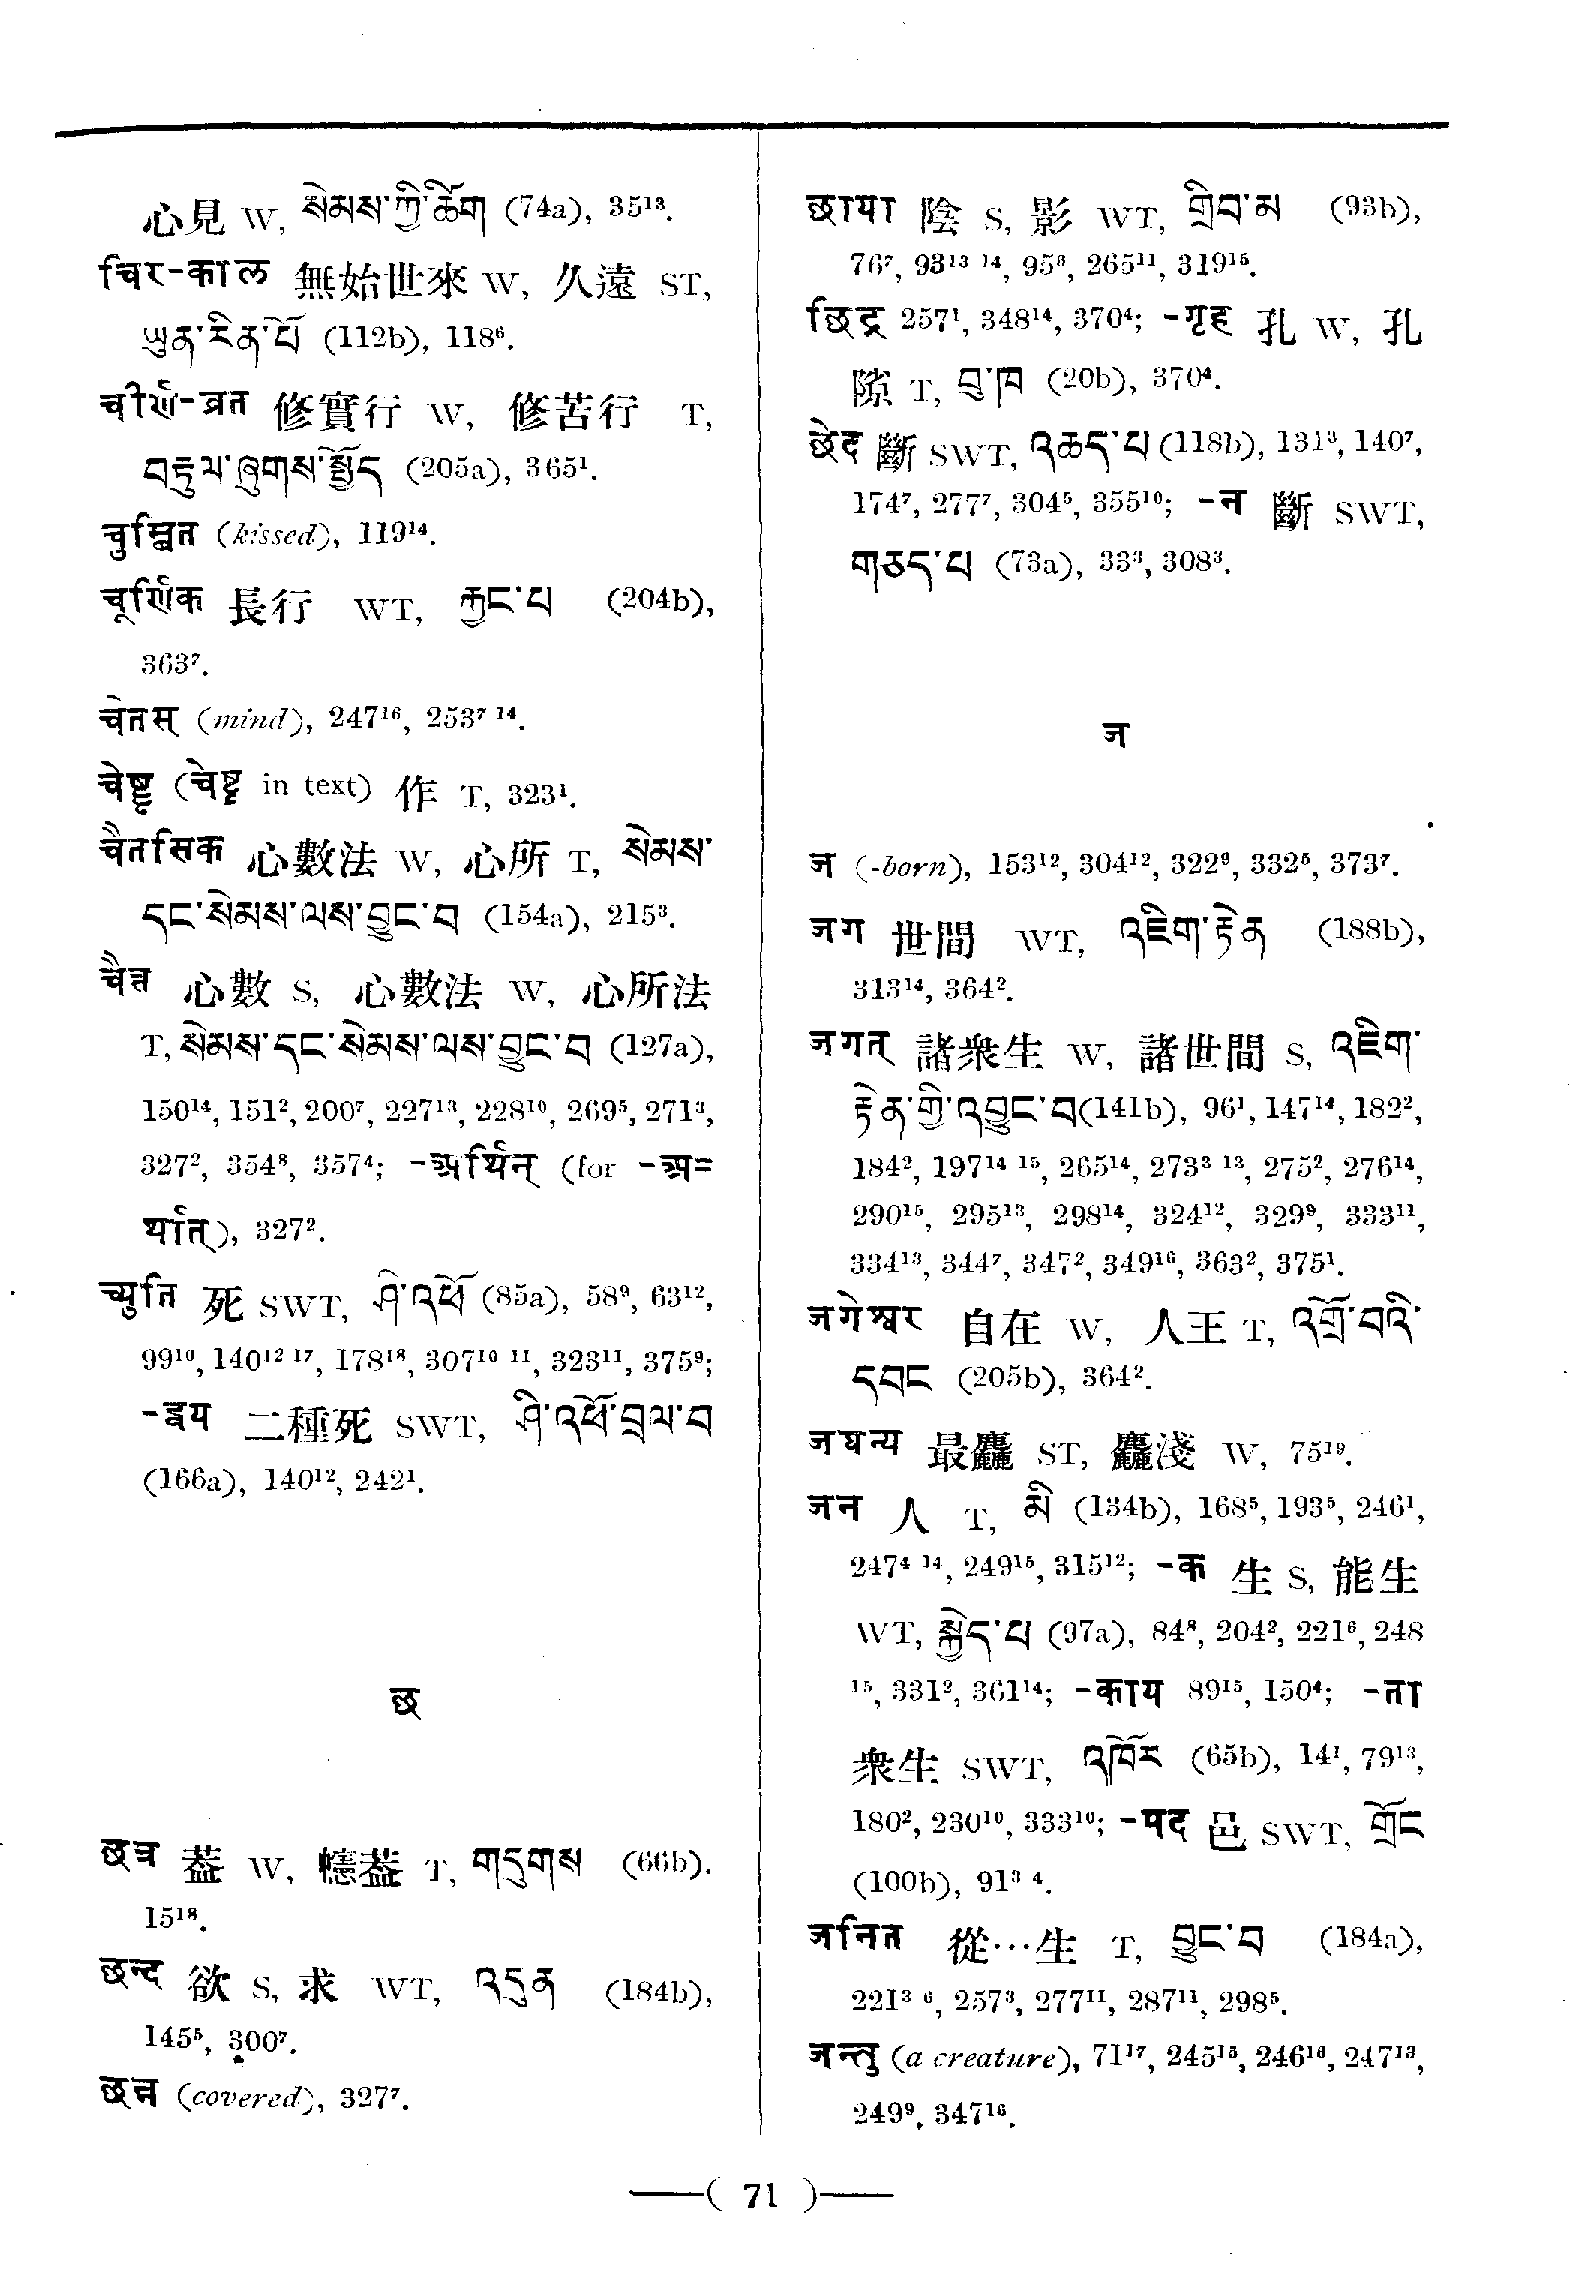 心見 W, སེམས་ཀྱི་ཚོག (74a), 35¹³.
चिर-काल 無始世來 W, 久遠 ST,
ཡུན་རིན་པོ (112b), 118⁶.
चीर्ण-व्रत 修實行 W, 修苦行 T,
བརྟུལ་ཞུགས་སྤྱོད (205a), 365¹.
चुम्बित (kissed), 119¹⁴.
चूर्णिक 長行 WT, རྐྱང་པ (204b),
363⁷.
चेतस् (mind), 247¹⁶, 253⁷ ¹⁴.
चेष्टृ (चेष्ट in text) 作 T, 323¹.
चैतसिक 心數法 W, 心所 T, སེམས་
དང་སེམས་ལས་བྱུང་བ (154a), 215³.
चैत्त 心數 S, 心數法 W, 心所法
T, སེམས་དང་སེམས་ལས་བྱུང་བ (127a),
150¹⁴, 151², 200⁷, 227¹³, 228¹⁰, 269⁵, 271³,
327², 354⁸, 357⁴; -अर्थिन् (for -अ=
र्थात्), 327².
च्युति 死 SWT, ཤི་འཕོ (85a), 58⁹, 63¹²,
99¹⁰, 140¹² ¹⁷, 178¹⁸, 307¹⁰ ¹¹, 323¹¹, 375⁹;
-द्वय 二種死 SWT, ཤི་འཕོ་བྲལ་བ
(166a), 140¹², 242¹.
छ
छत्र 葢 W, 幰葢 T, གདུགས (66b),
15¹⁸.
छन्द 欲 S, 求 WT, འདུན (184b),
145⁵, 300⁷.
छन्न (covered), 327⁷.
छाया 陰 S, 影 WT, གྲིབ་མ (93b),
76⁷, 93¹³ ¹⁴, 95⁸, 265¹¹, 319¹⁵.
छिद्र 257¹, 348¹⁴, 370⁴; -गृह 孔 W, 孔
隙 T, བྲ་ཁ (20b), 370⁴.
छेद 斷 SWT, འཆད་པ (118b), 131³, 140⁷,
174⁷, 277⁷, 304⁵, 355¹⁰; -न 斷 SWT,
གཅད་པ (73a), 33³, 308³.
ज
ज (-born), 153¹², 304¹², 322⁹, 332⁵, 373⁷.
जग 世間 WT, འཇིག་རྟེན (188b),
313¹⁴, 364².
जगत् 諸衆生 W, 諸世間 S, འཇིག་
རྟེན་གྱི་འབྱུང་བ(141b), 96¹, 147¹⁴, 182²,
184², 197¹⁴ ¹⁵, 265¹⁴, 273³ ¹³, 275², 276¹⁴,
290¹⁵, 295¹³, 298¹⁴, 324¹², 329⁹, 333¹¹,
334¹³, 344⁷, 347², 349¹⁶, 363², 375¹.
जगेश्वर 自在 W, 人王 T, འགྲོ་བའི་
དབང (205b), 364².
जघन्य 最麤 ST, 麤淺 W, 75¹⁹.
जन 人 T, མི (134b), 168⁵, 193⁵, 246¹,
247⁴ ¹⁴, 249¹⁵, 315¹²; -क 生 S, 能生
WT, སྐྱེད་པ (97a), 84⁸, 204², 221⁶, 248
¹⁵, 331², 361¹⁴; -काय 89¹⁵, 150⁴; -ता
衆生 SWT, འཁོར (65b), 14¹, 79¹³,
180², 230¹⁰, 333¹⁰; -पद 邑 SWT, གྲོང
(100b), 91³ ⁴.
जनित 從…生 T, བྱུང་བ (184a),
221³ ⁶, 257³, 277¹¹, 287¹¹, 298⁵.
जन्तु (a creature), 71¹⁷, 245¹⁵, 246¹⁶, 247¹³,
249⁹, 347¹⁶.
( 71 )